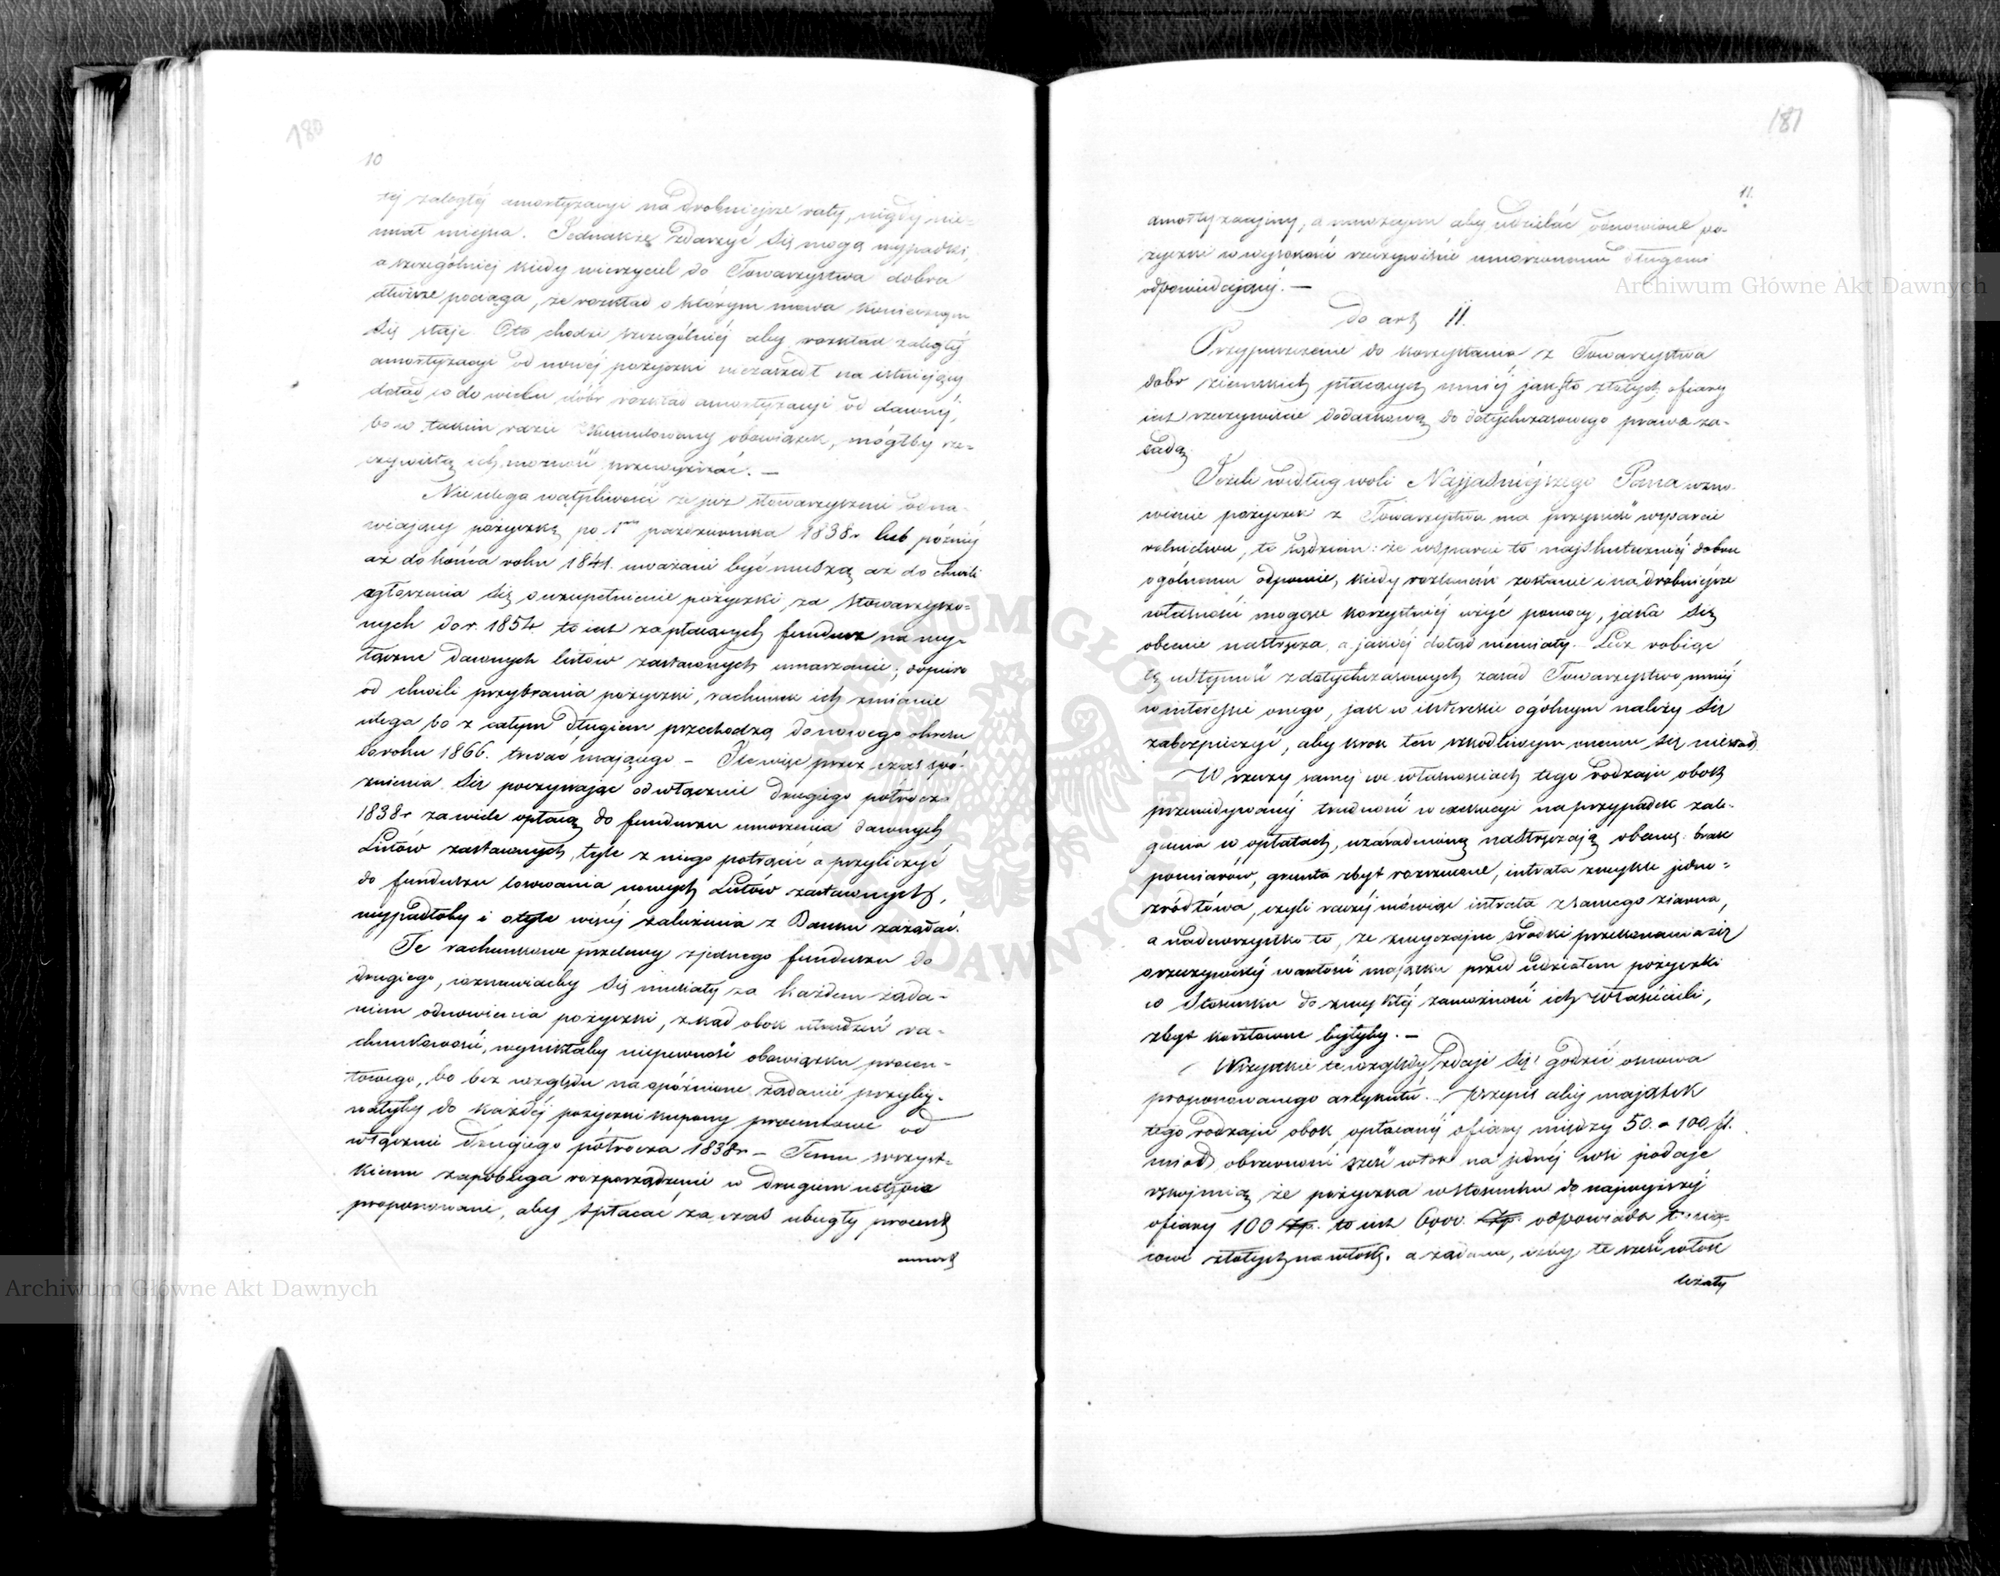 180
10
tej zaległéj amortyzacyi na drobniejsze raty, nigdy nie-
miał miejsca. Jednakże zdarzyć się mogą wypadki,
a szczególniej kiedy wierzyciel do Towarzystwa dobra
dłużne pociąga, że rozkład o którym mowa koniecznym
się staje. Oto chodzi szczególniéj aby rozkład zaległéj
amortyzacyi od nowéj pożyczki niezaszedł na istniejący
dotąd co do wielu dóbr rozkład amortyzacyi od dawnéj,
bo w takim razie skumulowany obowiązek, mógłby rze-
czywistą ich możność przewyższać. —
Nie ulega wątpliwości że już stowarzyszeni odna-
wiający pożyczkę po 1m października 1838r lub późniéj
aż do końca roku 1841. uważani być muszą aż do chwili
zgłoszenia się o uzupełnienie pożyczki, za stowarzyszo-
nych do r. 1854. to jest za płacących fundusz na wy-
łączne dawnych listów zastawnych umarzanie; dopiero
od chwili przybrania pożyczki, rachunek ich zmianie
ulega bo z całym długiem przechodzą do nowego okresu
do roku 1866. trwać mającego — Ile więc przez czas spó-
źnienia się poczynając od włącznie drugiego półrocza
1838r za wiele opłacą do funduszu umorzenia dawnych
Listów zastawnych, tyle z niego potrącić a przyliczyć
do funduszu losowania nowych Listów zastawnych,
wypadłoby i o tyle więcéj zaliczenia z Banku zażądać.
Te rachunkowe przelewy z jednego funduszu do
drugiego, wznawiaćby się musiały za każdem żąda-
niem odnowienia pożyczki, zkąd obok utrudzeń ra-
chunkowości, wynikłaby niepewność obowiązku procen-
towego, bo bez względu na spóźnione żądanie przyby-
wałyby do każdéj pożyczki kupony procentowe od
włącznie drugiego półrocza 1838r — Temu wszyst-
kiemu zapobiega rozporządzenie w drugim ustępie
proponowane, aby spłacać za czas ubiegły procent
amort
181
11.
amortyzacyjny, a zaczem aby udzielać odnowione po-
życzki w wysokości rzeczywiście umorzonemu długowi
odpowiedającéj. —
do art 11.
Przypuszczenie do korzystania z Towarzystwa
dóbr ziemskich płacących mniéj jak sto złotych ofiary
jest rzeczywiście dodatkową do dotychczasowego prawa za-
sadą.
Jeżeli według woli Najjaśniejszego Pana wzno-
wienie pożyczek z Towarzystwa ma przynieść wsparcie
rolnictwu, to sądzim: że wsparcie to najskuteczniéj dobru
ogólnemu odpowie, kiedy rozciągnięte zostanie i na drobniejsze
własności mogące korzystniéj użyć pomocy, jaka się
obecnie nastręcza, a jakiéj dotąd niemiały. Lecz robiąc
tę ustępność z dotychczasowych zasad Towarzystwa, mniéj
w interesie onego, jak w interesie ogólnym należy się
zabezpieczyć, aby krok ten szkodliwym onemu się niestał.
W rzeczy saméj we własnościach tego rodzaju obok
przewidywanéj trudności w exekucyi na przypadek zale-
gania w opłatach, uzasadnioną nastręczają obawę: brak
pomiarów, grunta zbyt rozrzucone, intrata zwykle jedno-
źródłowa, czyli raczéj mówiąc intrata z samego ziarna,
a nadewszystko to, że zwyczajne środki przekonania się
o rzeczywistéj wartości majątku przed udziałem pożyczki
w stosunku do zwykłéj zamożności ich właścicieli,
zbyt kosztowne byłyby. —
Wszystkie te względy zdaje się godzić osnowa
proponowanego artykułu. Przepis aby majątek
tego rodzaju obok opłacanéj ofiary między 50. a 100. zł.
miał obszerności sześć włók na jednéj wsi podaje
rękojmią że pożyczka w stosunku do najwyższéj
ofiary 100 Złp. to jest 6000. Złp. odpowiada
złotych na włókę. a żądanie, iżby te sześć włók
leżały